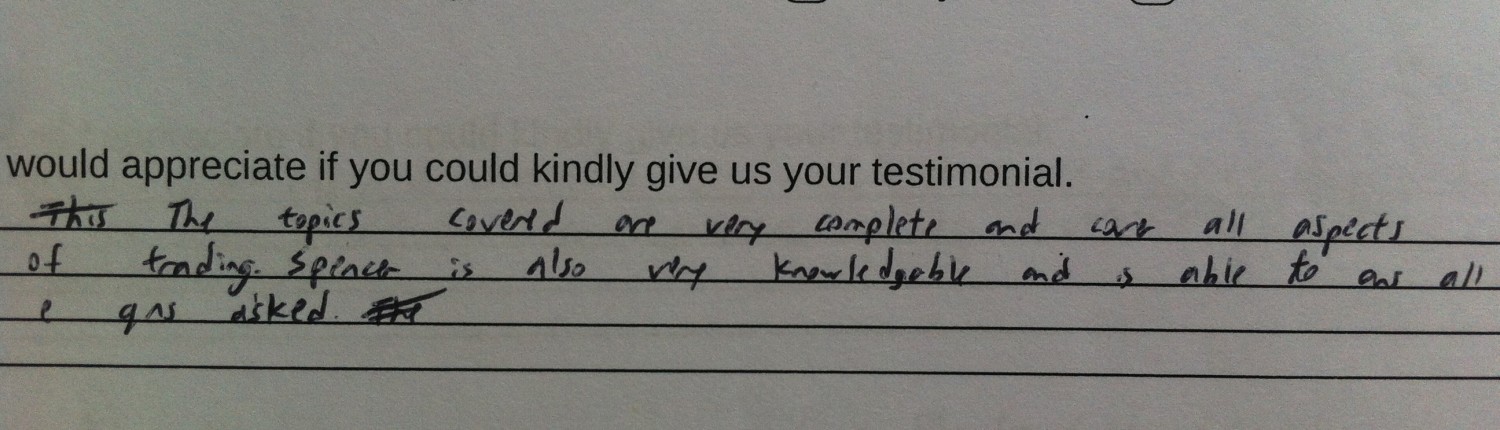 would appreciate if you could kindly give us your testimonial.
This The topics covered are very complete and cover all aspects
of trading. Spencer is also very knowledgeable and is able to ans all
e qns asked.